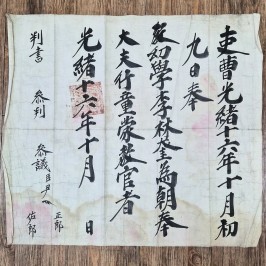 吏曹光緖十六年十月初
九日奉
敎幼學李林爲朝奉
大夫行童蒙敎官者
光緖十六年十月 日
判書 參判 參議臣 正郞
佐郞